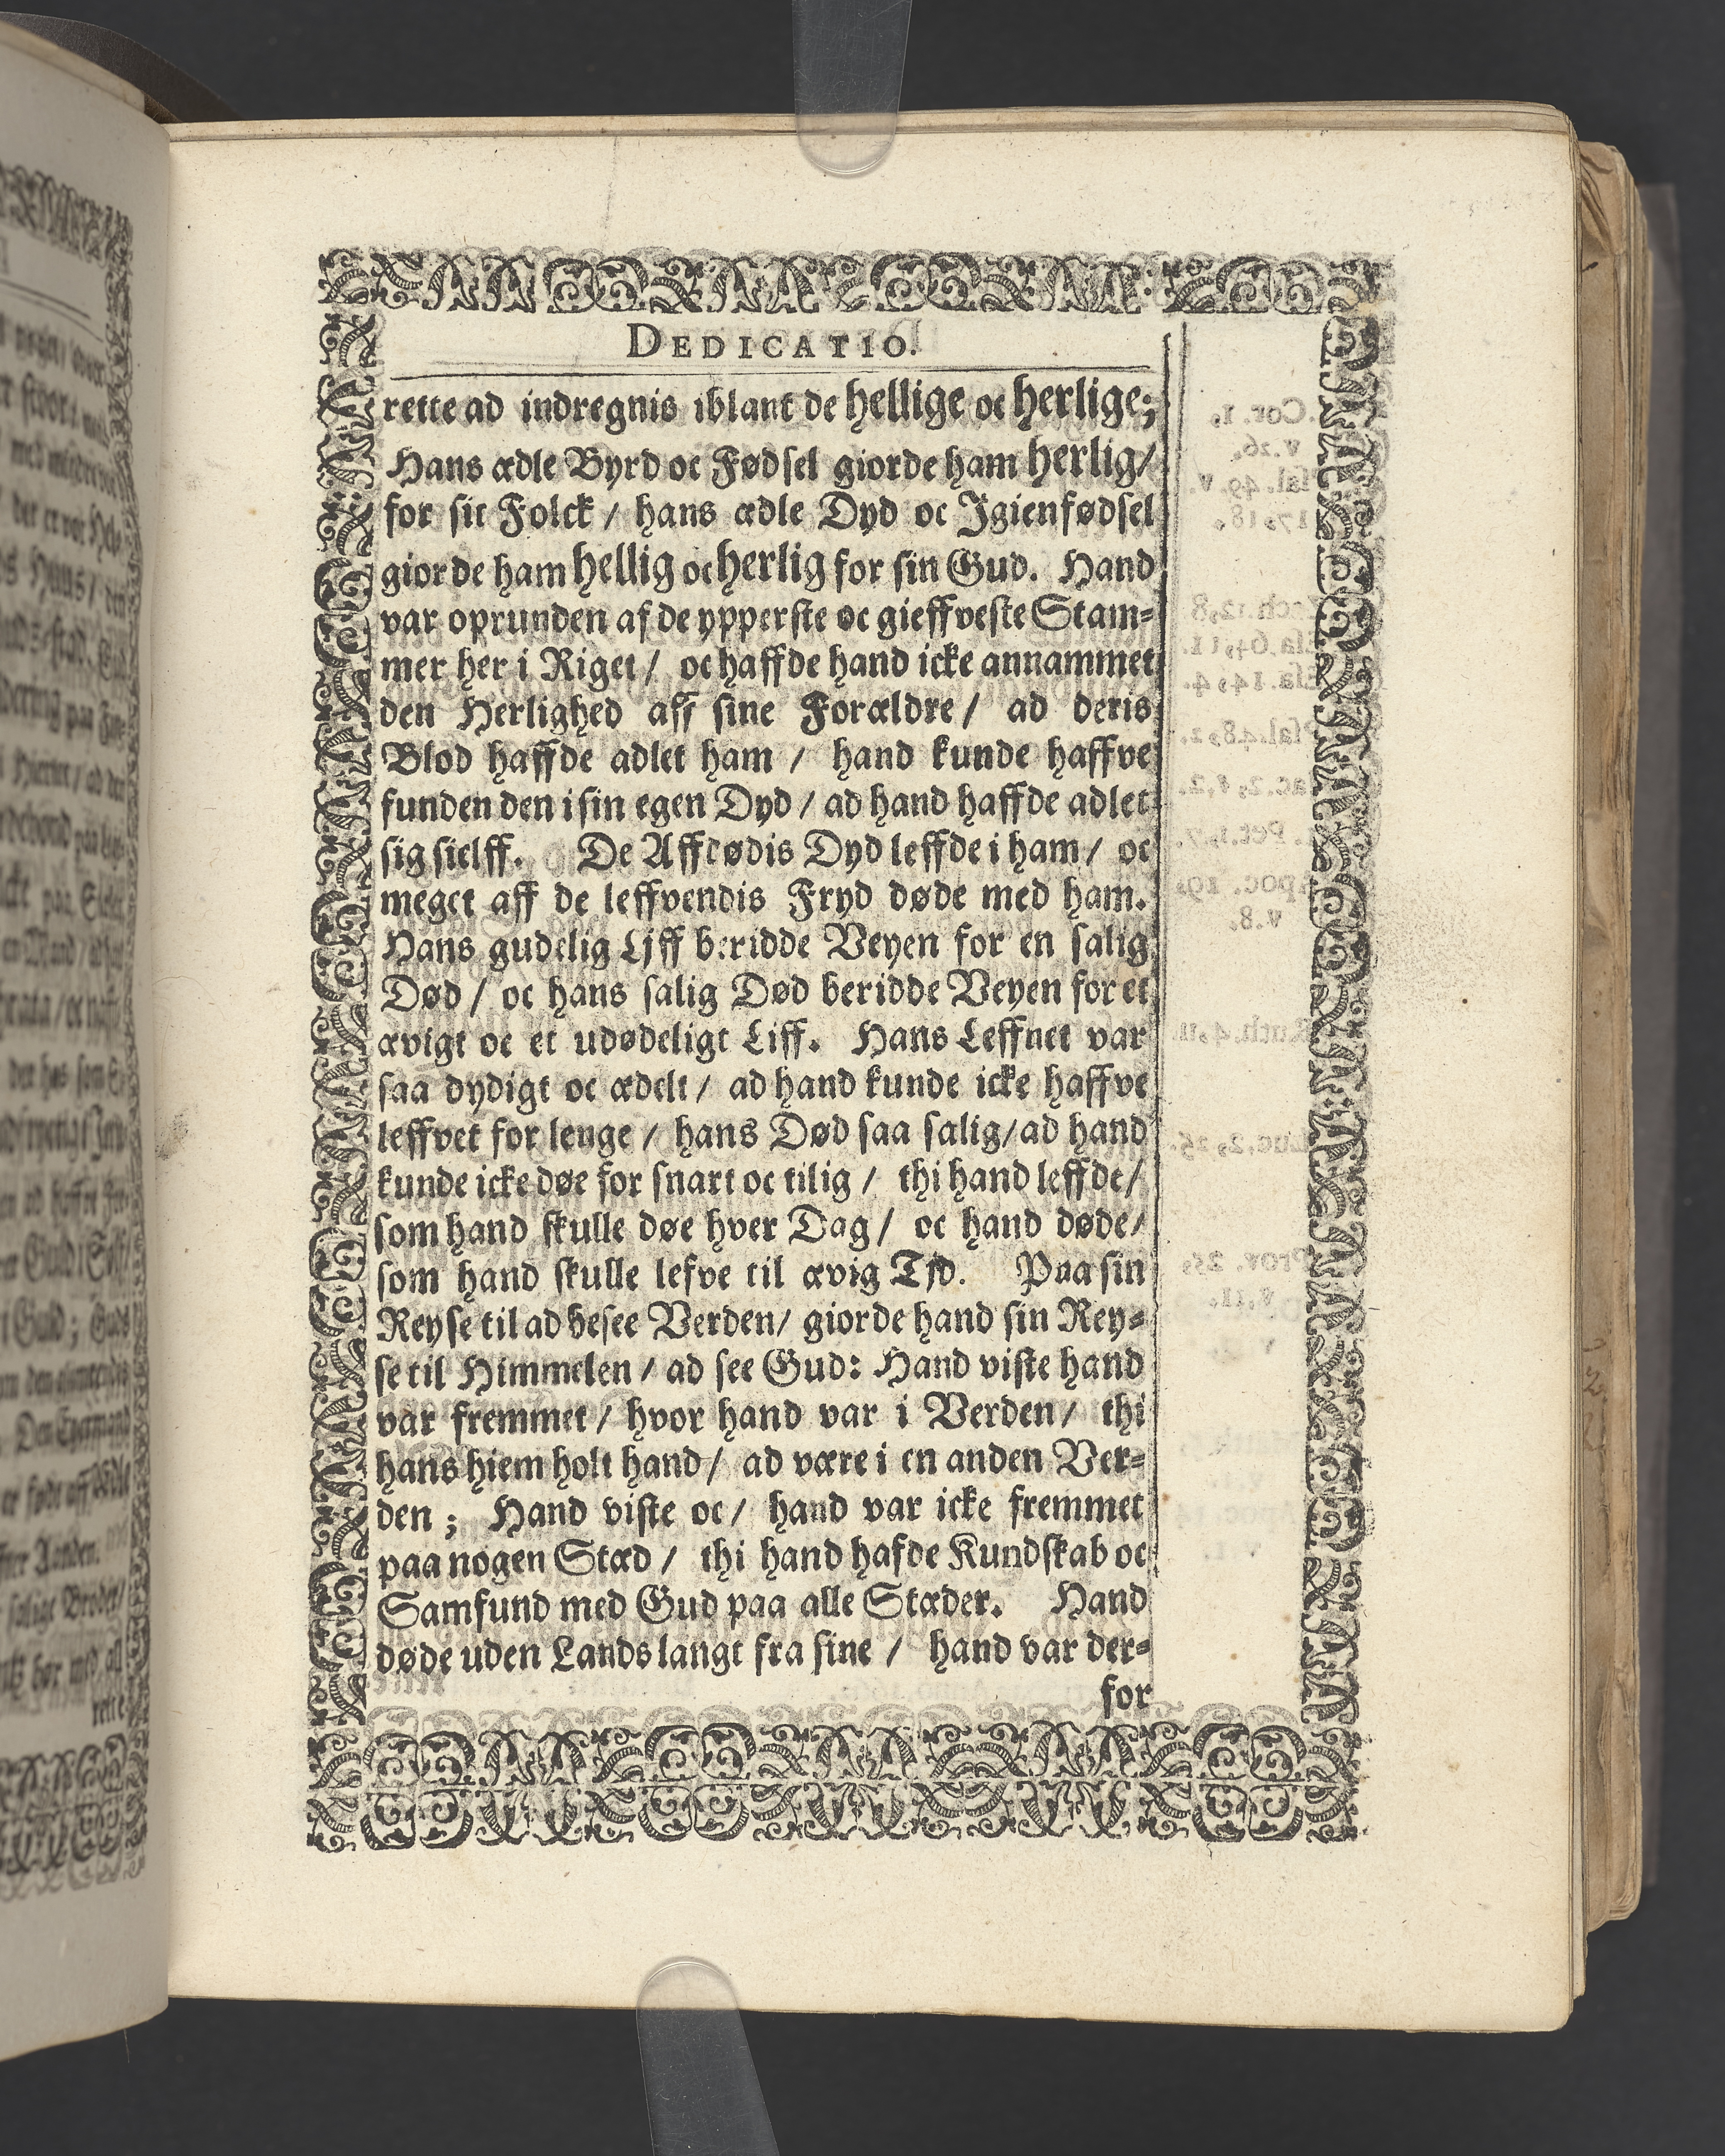 DEDICATIO.
rette ad indregnis iblant de hellige oc herlige;
Hans ædle Byrd oc Fødsel giorde ham herlig/
for sit Folck / hans ædle Dyd oc Igienfødsel
giorde ham hellig oc herlig for sin Gud. Hand
var oprunden af de ypperste oc gieffveste Stam-
mer her i Riget / oc haffde hand icke annammet
den Herlighed aff sine Forældre / ad deris
Blod haffde adlet ham / hand kunde haffve
funden den i sin egen Dyd / ad hand haffde adlet
sig sielff. De Affdødis Dyd leffde i ham / oc
meget aff de leffvendis Fryd døde med ham.
Hans gudelig Ljff beridde Veyen for en salig
Død / oc hans salig Død beridde Veyen for et
ævigt oc et udødeligt Liff. Hans Leffnet var
saa dydigt oc ædelt / ad hand kunde icke haffve
leffvet for lenge / hans Død saa salig / ad hand
kunde icke døe for snart oc tilig / thi hand leffde /
som hand skulle døe hver Dag / oc hand døde /
som hand skulle lefve til ævig Tjd. Paa sin
Reyse til ad besee Verden / giorde hand sin Rey-
se til Himmelen / ad see Gud: Hand viste hand
var fremmet / hvor hand var i Verden / thi
hans hiem holt hand / ad være i en anden Ver-
den ; Hand viste oc / hand var icke fremmet
paa nogen Stæd / thi hand hafde Kundskab oc
Samfund med Gud paa alle Stæder. Hand
døde uden Lands langt fra sine / hand var der-
for